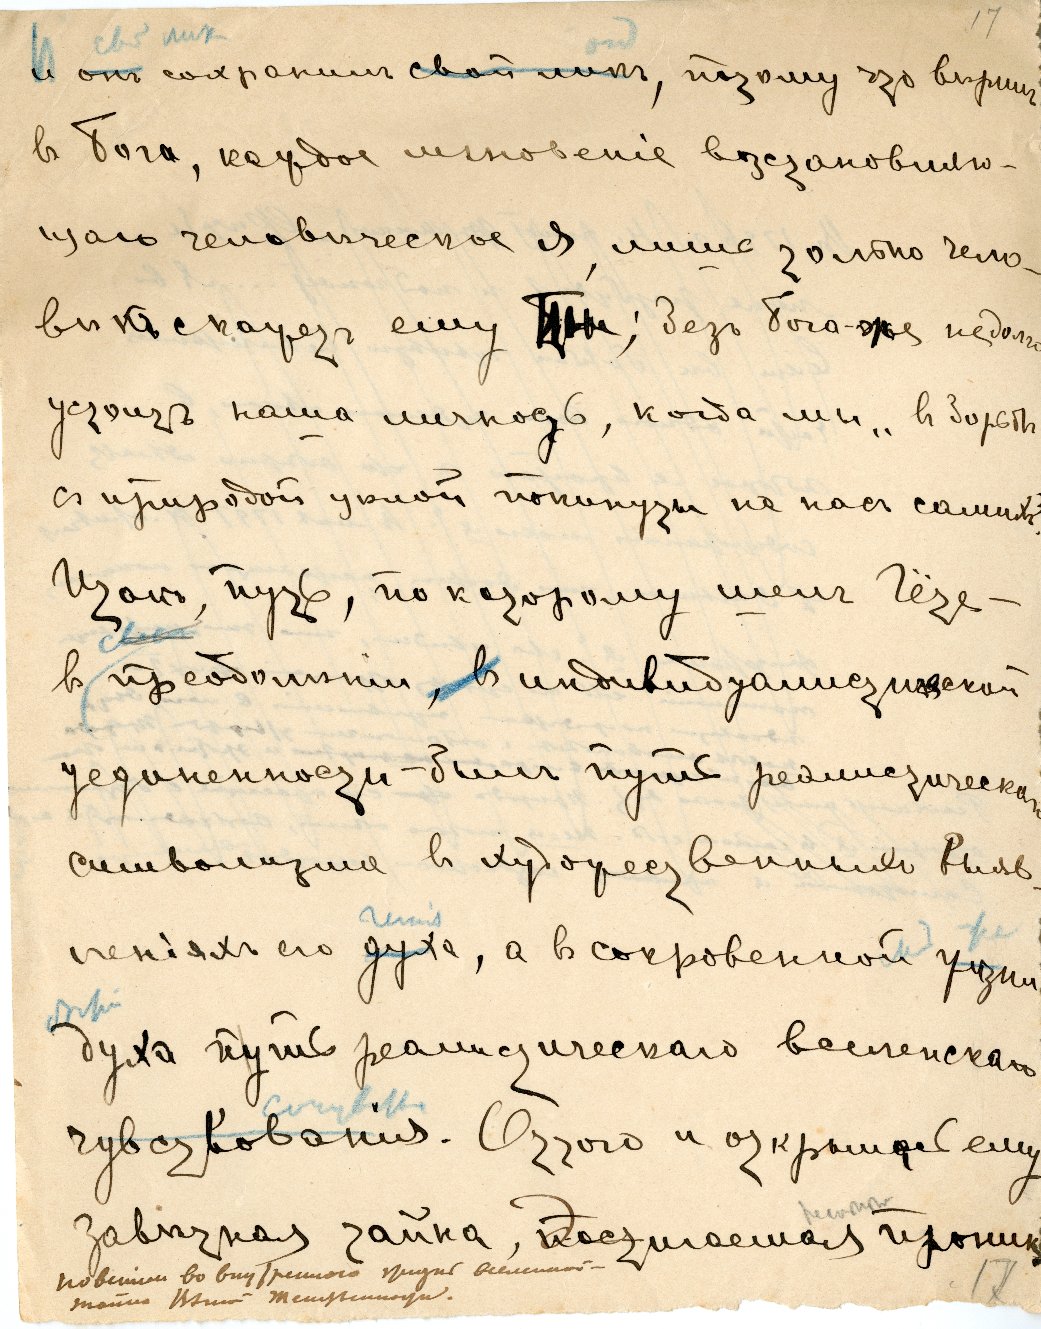 17
И свой лик
и онъ сохранилъ свой ликъ, потому что вѣритъ
въ Бога, каждое мгновеніе возстановляю-
щаго человѣческое я, лишь только чело-
вѣкъ скажетъ ему Ты; безъ Бога-же недолго
устоитъ наша личность, когда мы „въ борьбѣ
съ природой уклой покинуты на насъ самихъ“.
Итакъ, путь, по которому шелъ Гёте-
свой
въ преодолѣніи, въ индивидуалистической
уединенности-былъ путь реалистическаго
символизма въ художественныхъ выяв-
генія
леніяхъ его духа, а въ сокровенной жизни
духа путь реалистическаго вселенскаго
чувствованія. Оттого и открылась ему
завѣтная тайна, постигаемая проник-
новеніемъ во внутреннюю жизнь вселенной-
тайна Вѣчной Женственности.
17